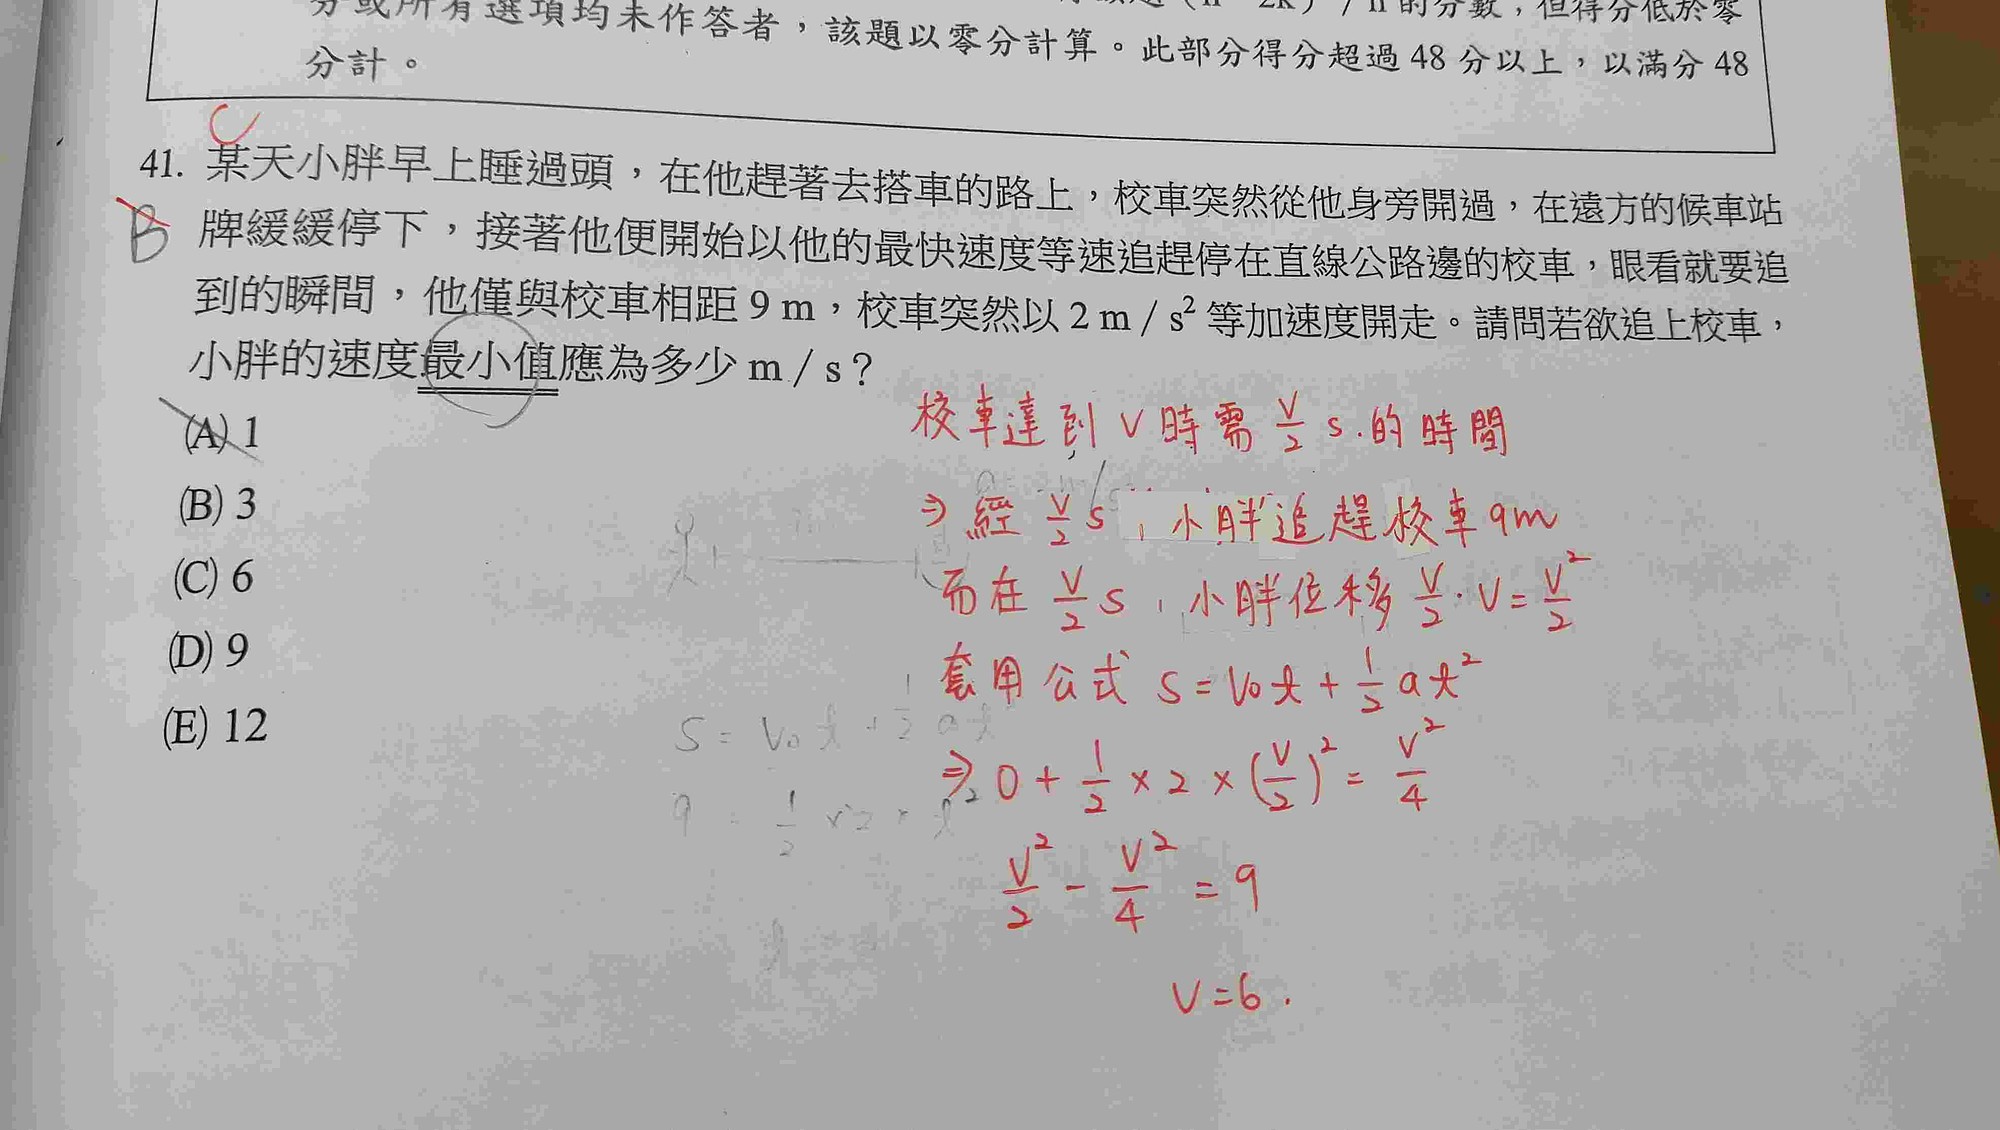 分或所有選項均未作答者，該題以零分計算。此部分得分超過 48 分以上，以滿分 48
的分數，但得分低於零
分計。
C
41. 某天小胖早上睡過頭，在他趕著去搭車的路上，校車突然從他身旁開過，在遠方的候車站
B
牌緩緩停下，接著他便開始以他的最快速度等速追趕停在直線公路邊的校車，眼看就要追
到的瞬間，他僅與校車相距 9 m，校車突然以 2 m / s² 等加速度開走。請問若欲追上校車，
小胖的速度最小值應為多少 m / s？
(A) 1
(B) 3
(C) 6
(D) 9
(E) 12
校車達到 V 時需 V/2 s.的時間
⇒ 經 V/2 s，小胖追趕校車 9m
而在 V/2 s，小胖位移 V/2 · V = V²/2
套用公式 S = V₀t + 1/2 at²
⇒ 0 + 1/2 × 2 × (V/2)² = V²/4
V²/2 - V²/4 = 9
V = 6 .
S = V₀t + 1/2 at²
9 = 1/2 × 2 × t²